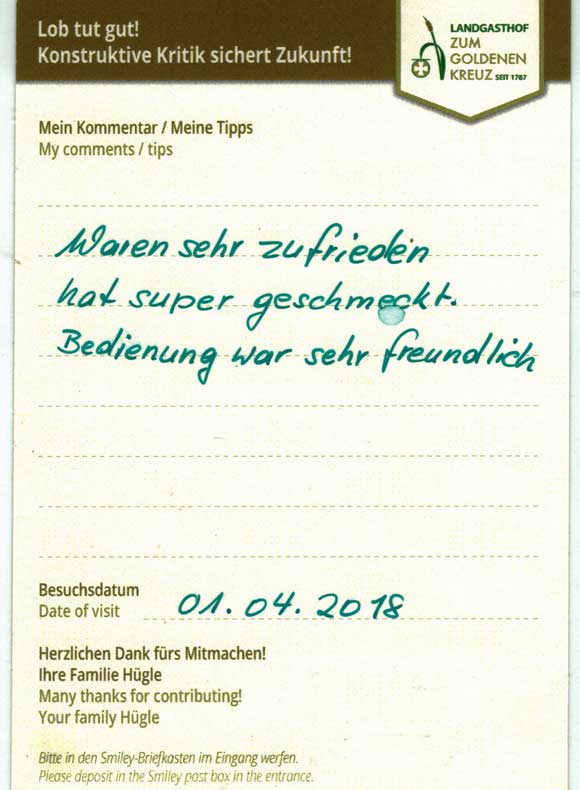 Lob tut gut!
Konstruktive Kritik sichert Zukunft!
LANDGASTHOF
ZUM
GOLDENEN
KREUZ SEIT 1787
Mein Kommentar / Meine Tipps
My comments / tips
Waren sehr zufrieden
hat super geschmeckt.
Bedienung war sehr freundlich
Besuchsdatum
Date of visit 01.04.2018
Herzlichen Dank fürs Mitmachen!
Ihre Familie Hügle
Many thanks for contributing!
Your family Hügle
Bitte in den Smiley-Briefkasten im Eingang werfen.
Please deposit in the Smiley post box in the entrance.